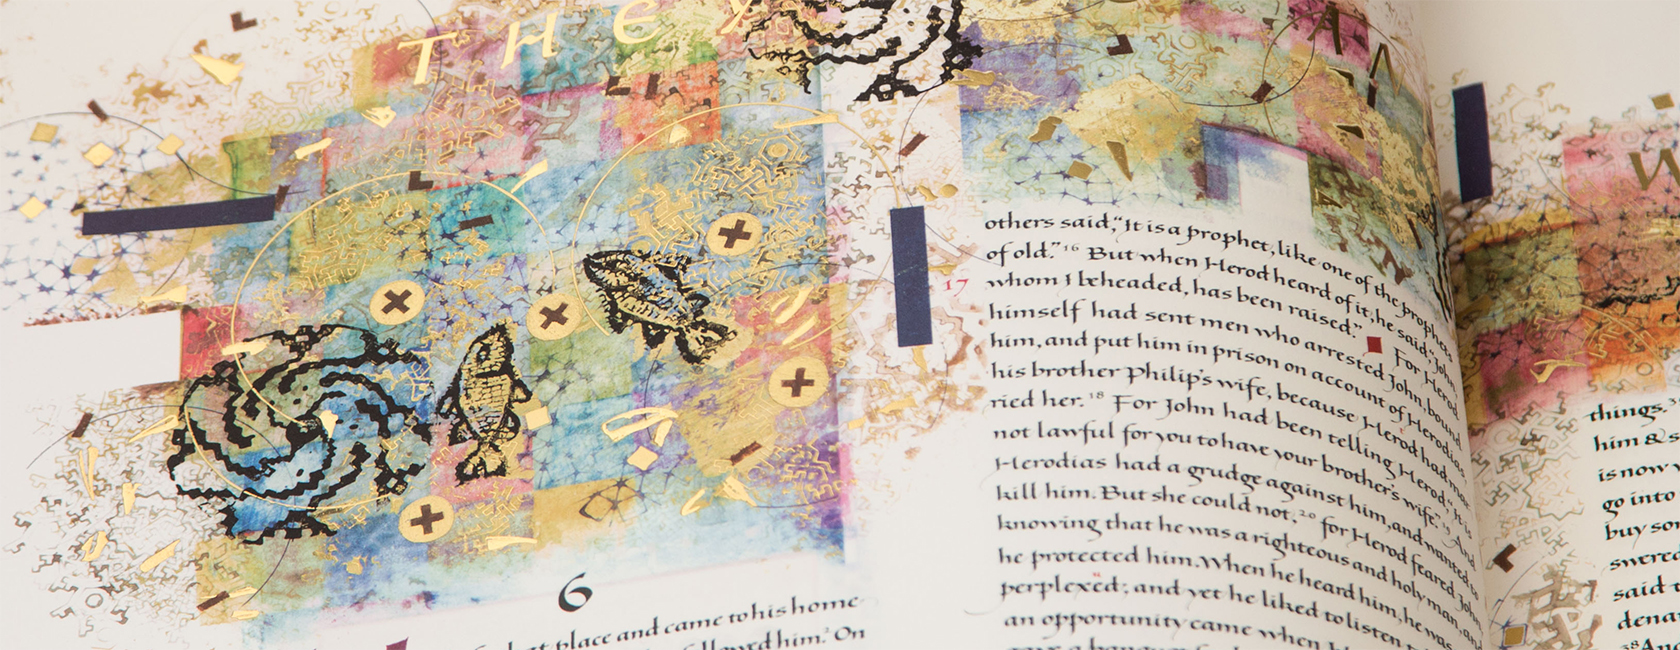 THEY
6
that place and came to his home
followed him.² On
others said, "It is a prophet, like one of the prophets
of old." ¹⁶ But when Herod heard of it, he said, "John,
17 whom I beheaded, has been raised." For Herod
himself had sent men who arrested John, bound
him, and put him in prison on account of Herodias,
his brother Philip's wife, because Herod had mar
ried her. ¹⁸ For John had been telling Herod, "It is
not lawful for you to have your brother's wife." ¹⁹ And
Herodias had a grudge against him, and wanted to
kill him. But she could not, ²⁰ for Herod feared John,
knowing that he was a righteous and holy man, and
he protected him. When he heard him, he was
perplexed; and yet he liked to listen
an opportunity came when
gave a banquet
things.
him &
is now
go into
buy
swered
said
dena
³⁸ And